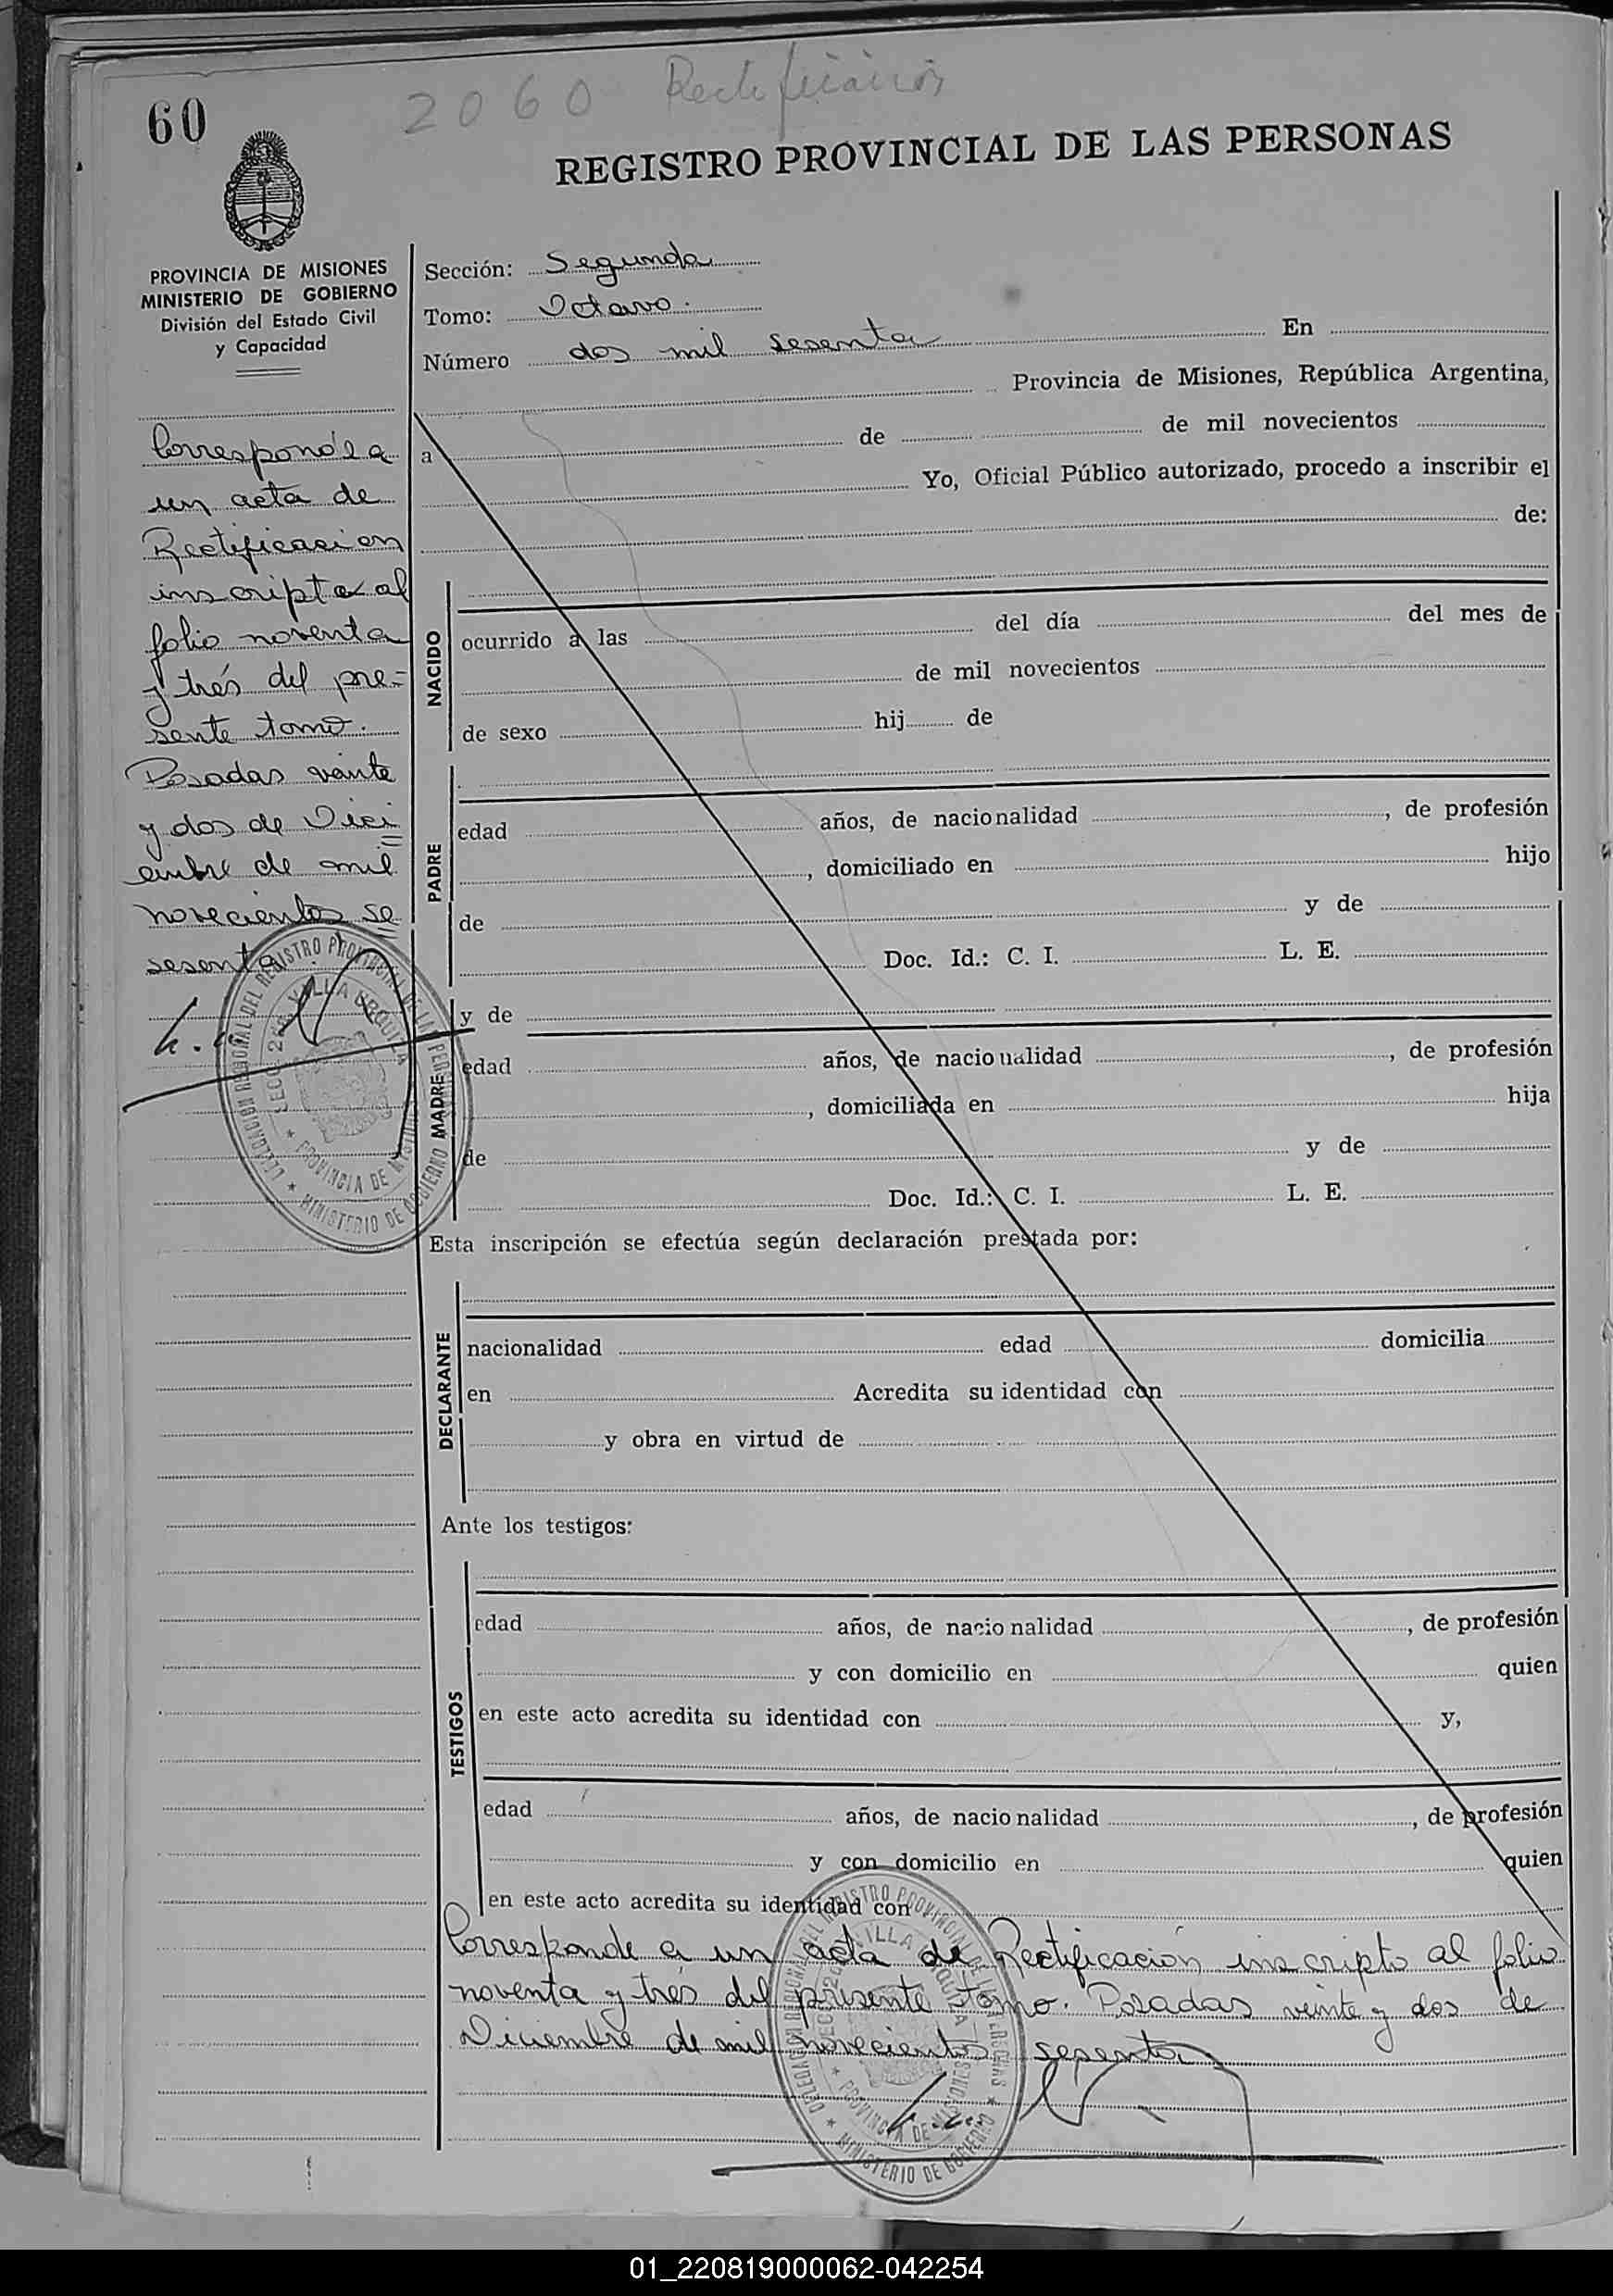 2060 Rectificación
60
REGISTRO PROVINCIAL DE LAS PERSONAS
PROVINCIA DE MISIONES
MINISTERIO DE GOBIERNO
División del Estado Civil
y Capacidad
Corresponde a
un acta de
Rectificacion
inscripta al
folio noventa
y trés del pre-
sente tomo.
Posadas veinte
y dos de Dici
embre de mil
novecientos se
sesenta
DELEGACION REGIONAL DEL REGISTRO PROVINCIAL DE LAS PERSONAS
SECC. 2da VILLA URQUIZA
PROVINCIA DE MISIONES
MINISTERIO DE GOBIERNO
Sección: Segunda
Tomo: Octavo.
Número dos mil sesenta En
Provincia de Misiones, República Argentina,
a de de mil novecientos
Yo, Oficial Público autorizado, procedo a inscribir el
de:
NACIDO
ocurrido a las del día del mes de
de mil novecientos
de sexo hij de
PADRE
edad años, de nacionalidad , de profesión
, domiciliado en hijo
de y de
Doc. Id.: C. I. L. E.
y de
MADRE
edad años, de nacionalidad , de profesión
, domiciliada en hija
de y de
Doc. Id.: C. I. L. E.
Esta inscripción se efectúa según declaración prestada por:
DECLARANTE
nacionalidad edad domicilia
en Acredita su identidad con
y obra en virtud de
Ante los testigos:
TESTIGOS
edad años, de nacionalidad , de profesión
y con domicilio en quien
en este acto acredita su identidad con y,
edad años, de nacionalidad , de profesión
y con domicilio en quien
en este acto acredita su identidad con
Corresponde a un acta de Rectificación inscripto al folio
noventa y trés del presente tomo. Posadas veinte y dos de
Diciembre de mil novecientos sesenta
DELEGACION REGIONAL DEL REGISTRO PROVINCIAL DE LAS PERSONAS
SECC. 2da VILLA URQUIZA
PROVINCIA DE MISIONES
MINISTERIO DE GOBIERNO
01_220819000062-042254